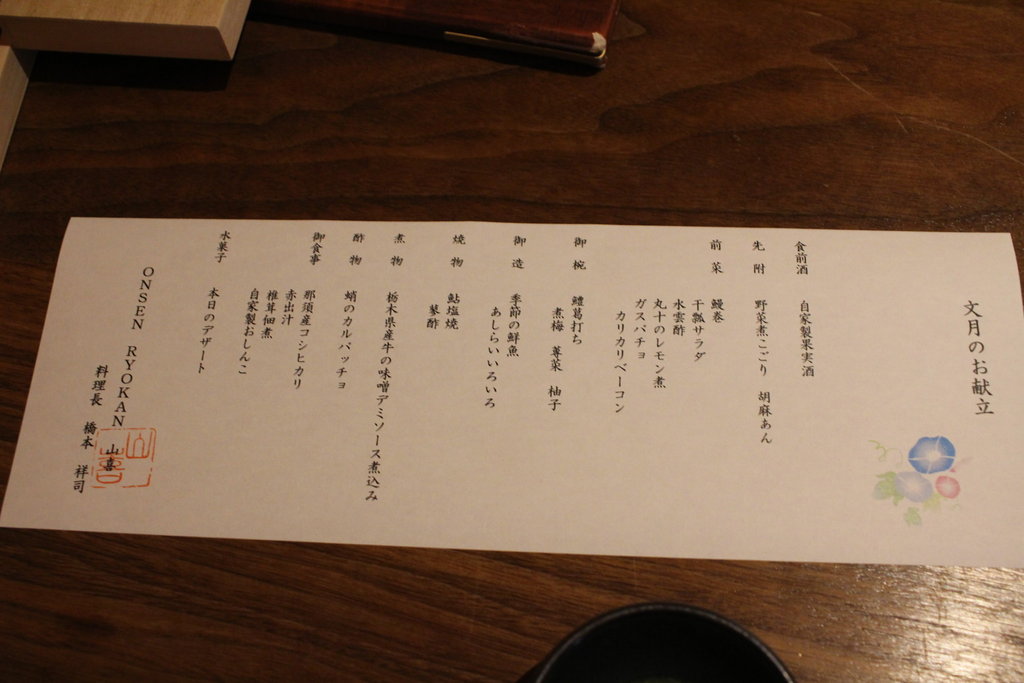 文月のお献立
食前酒 自家製果実酒
先附 野菜煮こごり 胡麻あん
前菜 鰻巻
干瓢サラダ
水雲酢
丸十のレモン煮
ガスパチョ
カリカリベーコン
御椀 鱧葛打ち
煮梅 蓴菜 柚子
御造 季節の鮮魚
あしらいいろいろ
焼物 鮎塩焼
蓼酢
煮物 栃木県産牛の味噌デミソース煮込み
酢物 蛸のカルパッチョ
御食事 那須産コシヒカリ
赤出汁
椎茸佃煮
自家製おしんこ
水菓子 本日のデザート
ONSEN RYOKAN 山喜
料理長 橋本 祥司
山喜